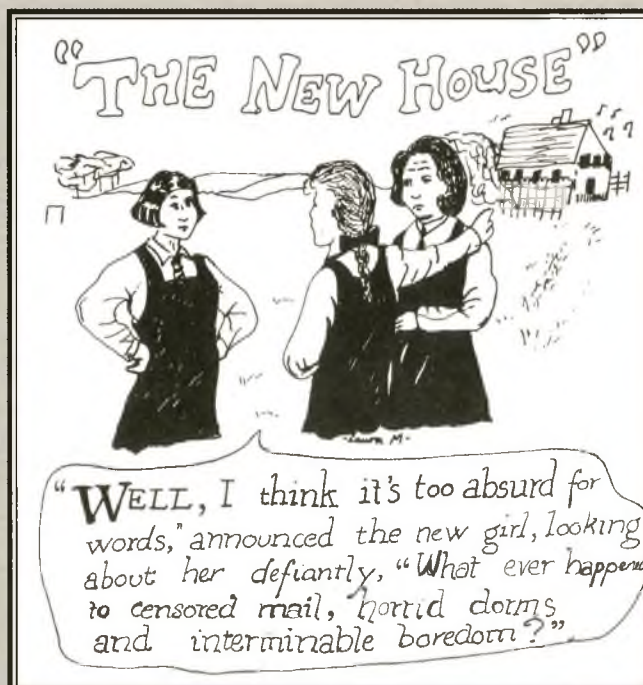 "THE NEW HOUSE"
-Laura M-
"WELL, I think it's too absurd for
words," announced the new girl, looking
about her defiantly, "What ever happened
to censored mail, horrid dorms
and interminable boredom?"